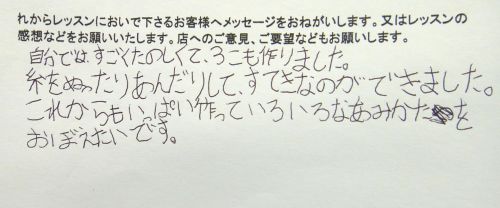 れからレッスンにおいで下さるお客様へメッセージをおねがいします。又はレッスンの
感想などをお願いいたします。店へのご意見、ご要望などもお願いします。
自分では、すごくたのしくて、3こも作りました。
糸をぬったりあんだりして、すてきなのができました。
これからもいっぱい作っていろいろなあみかたを
おぼえたいです。